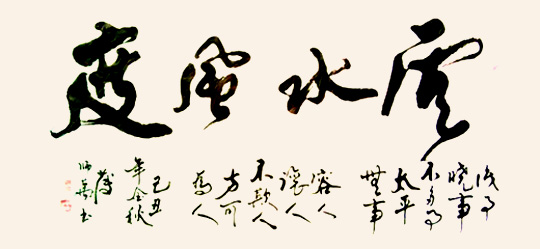 雲水風度
事
晓事
不多事
太平
無事
容人
讓人
不欺人
方可
為人
己丑
年金秋
书